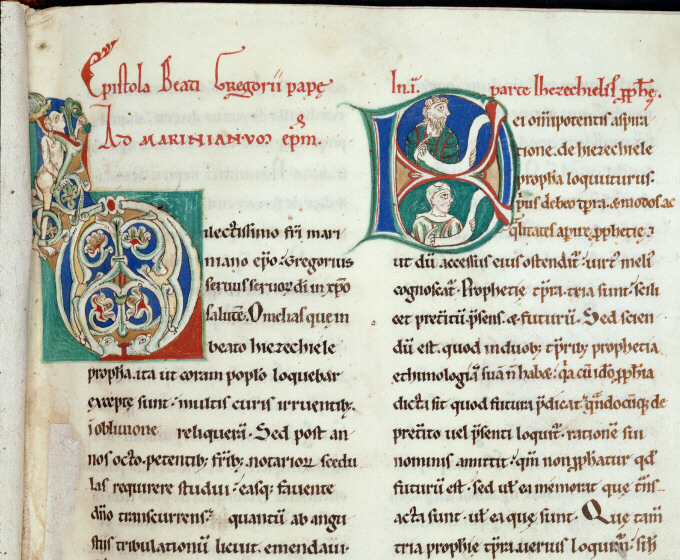 Epistola Beati Gregorii papę
Ad marinianum epm̄.
Dilectissimo fr̄i mari
niano ep̄o. Gregorius
seruus seruoꝝ di in xp̄o
salutē. Omelias que in
beato hiezechiele
propħa. ita ut coram poplo loquebar
exceptę sunt. multis curis irruentibꝫ
i obliuione reliquerā. Sed post an
nos octo. petentibꝫ fr̄ibꝫ. notarioꝝ scedu
las requirere studui. easqꝫ fauente
dn̄o transcurrens. quantū ab angu
stiis tribulationū licuit. emendaui.
In .i. parte Ihezechielis ꝓphę.
Dei om̄ipotentis aspira
tione. de hiezechiele
propħa loquuturus.
p̄us debeo tp̄ra. & modos ac
q̄litates aperire ꝓphetię;
ut dū accessus eius ostendit̄. uirt᷒ meli᷒
cognoscat̄. Prophetię tp̄ra tria sunt. scili
cet preteritū. p̄sens. & futurū. Sed scien
dū est. quod in duobꝫ tp̄ribꝫ prophetia
ethimologiā suā n̄ habet. q̄a cū ido ꝓphia
dicta sit quod futura p̄dicat. q̄ndocūqꝫ de
preterito uel p̄senti loquit̄. rationē sui
nominis amittit. qm̄ non ꝓphatur qd̄
futurū est. sed ul̄ ea memorat quę t̄ns
acta sunt. ul̄ ea quę sunt. Quę tam̄
tria prophię tp̄ra uerius loquim̄. si h̄